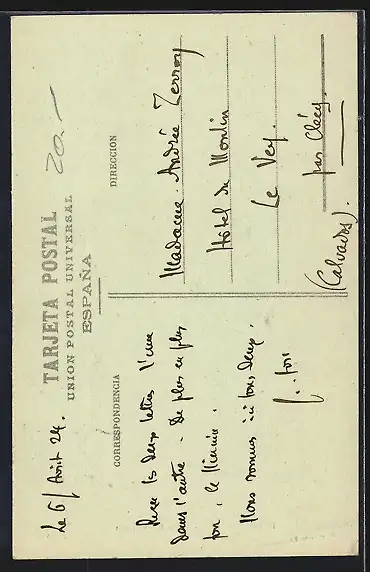 Le 6/ Août 24.
20.-
TARJETA POSTAL
UNION POSTAL UNIVERSAL
ESPAÑA
CORRESPONDENCIA
les deux lettres l'une
dans l'autre - De plus en plus
fou, le
Nous sommes ici tous deux.
DIRECCION
Madame Andrée Terroy
Hôtel du Moulin
Le Vey.
par Clécy.
(Calvados).